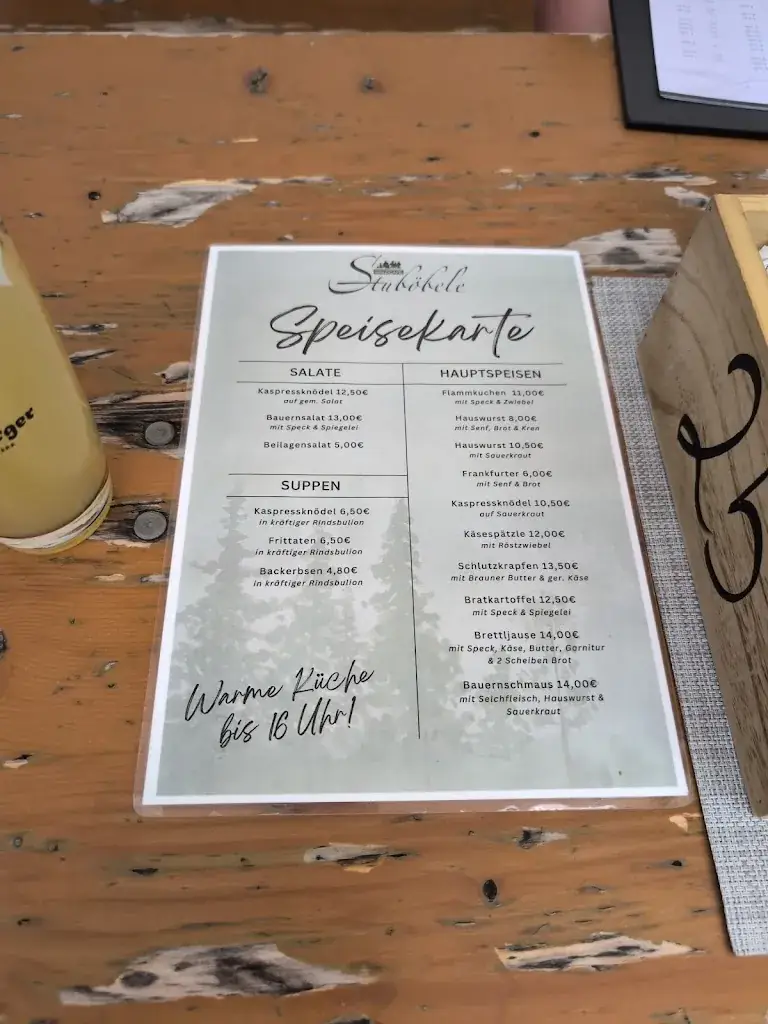 Stuböbele
Speisekarte
SALATE
Kaspressknödel 12,50€
auf gem. Salat
Bauernsalat 13,00€
mit Speck & Spiegelei
Beilagensalat 5,00€
SUPPEN
Kaspressknödel 6,50€
in kräftiger Rindsbullion
Frittaten 6,50€
in kräftiger Rindsbullion
Backerbsen 4,80€
in kräftiger Rindsbullion
Warme Küche
bis 16 Uhr!
HAUPTSPEISEN
Flammkuchen 11,00€
mit Speck & Zwiebel
Hauswurst 8,00€
mit Senf, Brot & Kren
Hauswurst 10,50€
mit Sauerkraut
Frankfurter 6,00€
mit Senf & Brot
Kaspressknödel 10,50€
auf Sauerkraut
Käsespätzle 12,00€
mit Röstzwiebel
Schlutzkrapfen 13,50€
mit Brauner Butter & ger. Käse
Bratkartoffel 12,50€
mit Speck & Spiegelei
Brettljause 14,00€
mit Speck, Käse, Butter, Garnitur
& 2 Scheiben Brot
Bauernschmaus 14,00€
mit Selchfleisch, Hauswurst &
Sauerkraut